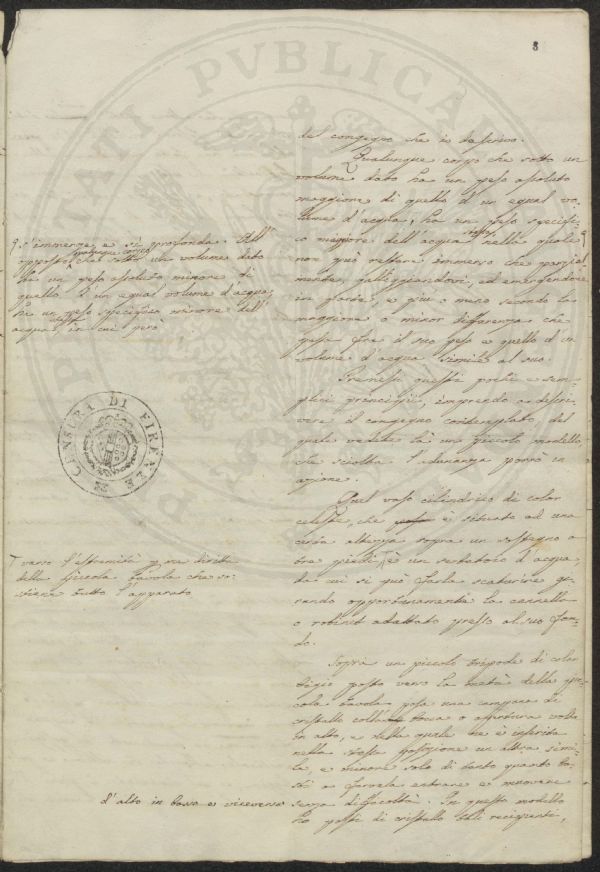 8
del congegno che io descrivo.
Qualunque corpo che sotto un
volume dato ha un peso assoluto
maggiore di quello d'un egual vo-
lume d'acqua, ha un peso specifi-
co maggiore dell'acqua stessa, nella quale
non può restare immerso che parzial
mente, galleggiandovi, ed emergendone
in parte, e più o meno secondo la
maggiore o minor differenza che
passa fra il suo peso e quello d'un
volume d'acqua simile al suo.
Premessi questi pochi e sem-
plici principii, imprendo a descri-
vere il congegno contemplato, del
quale vedete là un piccolo modello,
che sciolta l'adunanza porrò in
azione.
Quel vaso cilindrico di color
celeste, che è situato ad una
certa altezza sopra un sostegno a
tre piedi, è un serbatoio d'acqua,
da cui si può farla scaturire gi-
rando opportunamente la cannella
o robinet adattato presso al suo fon-
do.
Sopra un piccolo tripode di color
bigio posto verso la metà della pic-
cola tavola posa una campana di
cristallo colla bocca o apertura volta
in alto, e nella quale ne è inserita
nella stessa posizione un'altra simi-
le, e minore solo di tanto quanto ba-
sti a farvela entrare e muovere
senza difficoltà. In questo modello
ho posti di cristallo tali recipienti,
s'immerge e si profonda. All'
opposto qualunque corpo che sotto un volume dato
ha un peso assoluto minore di
quello d'un egual volume d'acqua,
ha un peso specifico minore dell'
acqua stessa, in cui però
CENSURA DI FIRENZE
verso l'estremità destra
della piccola tavola che so-
stiene tutto l'apparato
d'alto in basso e viceversa
PUBLICAE